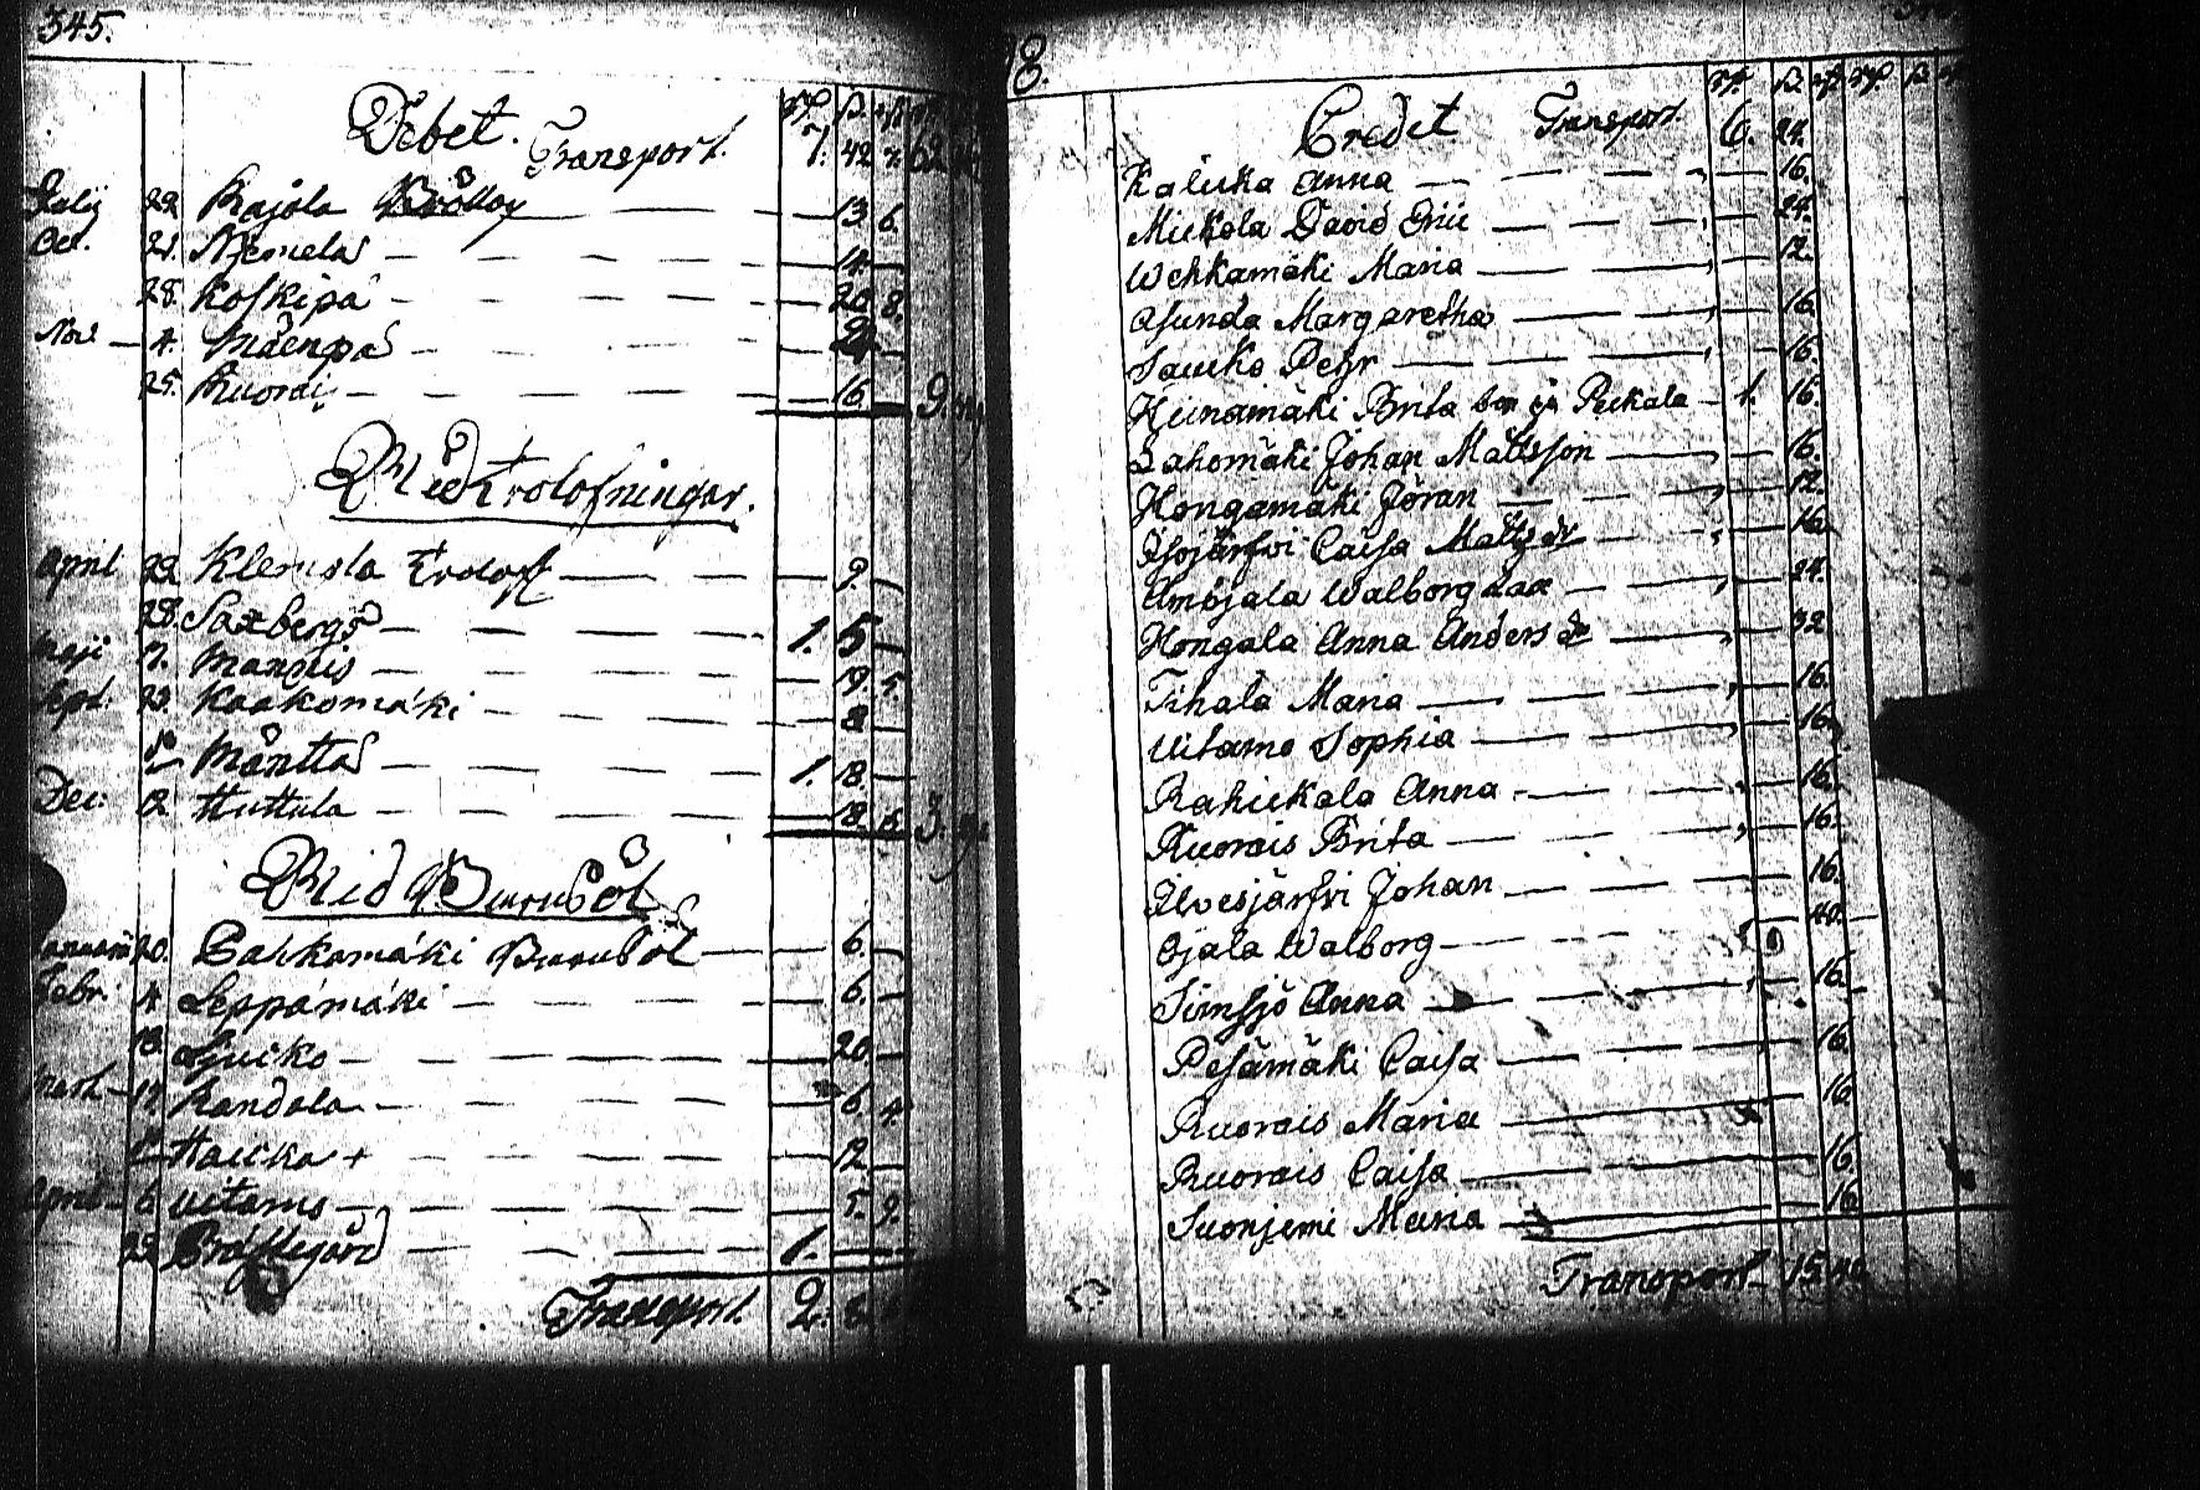 345.
Debet. Transport. 7. 42 7.
July 22 Rajala Bröllop 13 6.
Oct. 21. Njemelä 14.
28. Koskipä 20 8.
Nov. 4. Mäenpä 24
25. Ruorais 16. 9.
Vid Trolofningar.
April 22 Klemola Trolofn 9.
28. Saxbergs 1. 5
Maji 7. Mannis 19. 5.
Sept. 23. Kaakomäki 8
do Mänttä 1. 18.
Dec: 12. Huttula 18. 3.
Vid Barnsöl
Januarii 20. Pahkamäki Barnsöl 6.
Febr. 4 Seppämäki 6.
18. Sjuiko 20.
Mart. 17. Kandola 6. 4.
do Hauka + 12
April 6 Uitamo 5. 9.
22 Brättegård 1.
Transport. 2. 8
8.
Credet Transport. 6. 24.
Kaluka Anna 16.
Miekola David Eric 24.
Wehkamäki Maria 12.
Asunda Margaretha 16
Sauko Pehr 16.
Heinamäki Brita Peekala 1. 16.
Lahomäki Johan Mattsson 16.
Hongamäki Jöran 12.
Isojärfwi Caisa Matts dr 16
Ämöjala Walborg 24.
Hongala Anna Anders dr 32
Tihala Maria 16.
Uitamo Sophia 16
Rahiekala Anna 16.
Ruorais Brita 16.
Ilvesjärfvi Johan 16.
Ojala Walborg 40.
Simsjö Anna 16.
Pesämäki Caisa 16.
Ruorais Maria 16.
Ruorais Caisa 16.
Suonjemi Maria 16
Transport 15 40